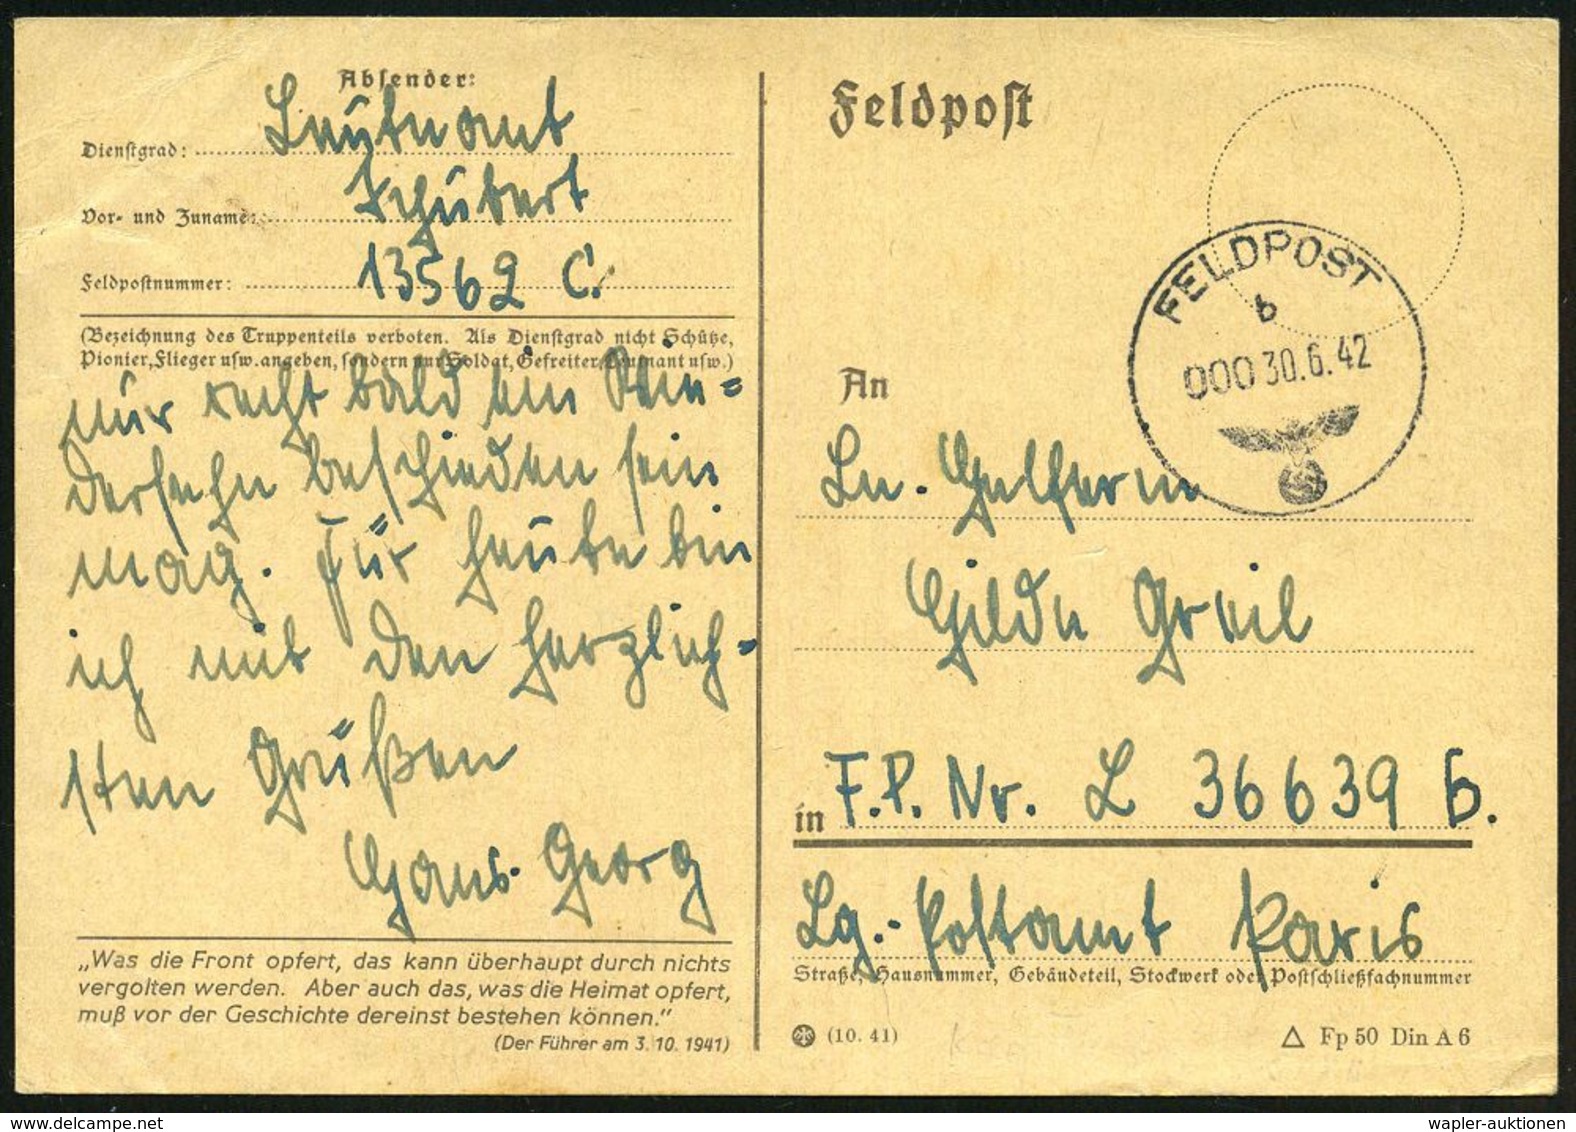 Absender:
Dienstgrad: Leutnant
Vor- und Zuname: Schubert
Feldpostnummer: 13562 C.
(Bezeichnung des Truppenteils verboten. Als Dienstgrad nicht Schütze,
Pionier, Flieger usw. angeben, sondern nur Soldat, Gefreiter, Leutnant usw.)
nur recht bald ein Wie=
dersehn beschieden sein
mag. Für heute bin
ich mit den herzlich=
sten Grüßen
Hans-Georg
„Was die Front opfert, das kann überhaupt durch nichts
vergolten werden. Aber auch das, was die Heimat opfert,
muß vor der Geschichte dereinst bestehen können.“
(Der Führer am 3. 10. 1941)
Feldpost
FELDPOST
b
000 30.6.42
An
Ln.-Helferin
Hilde Greil
in F.P. Nr. L 36639 b.
Lg.-Postamt Paris
Straße, Hausnummer, Gebäudeteil, Stockwerk oder Postschließfachnummer
(10. 41)
Fp 50 Din A 6
www.delcampe.net
wapler-auktionen